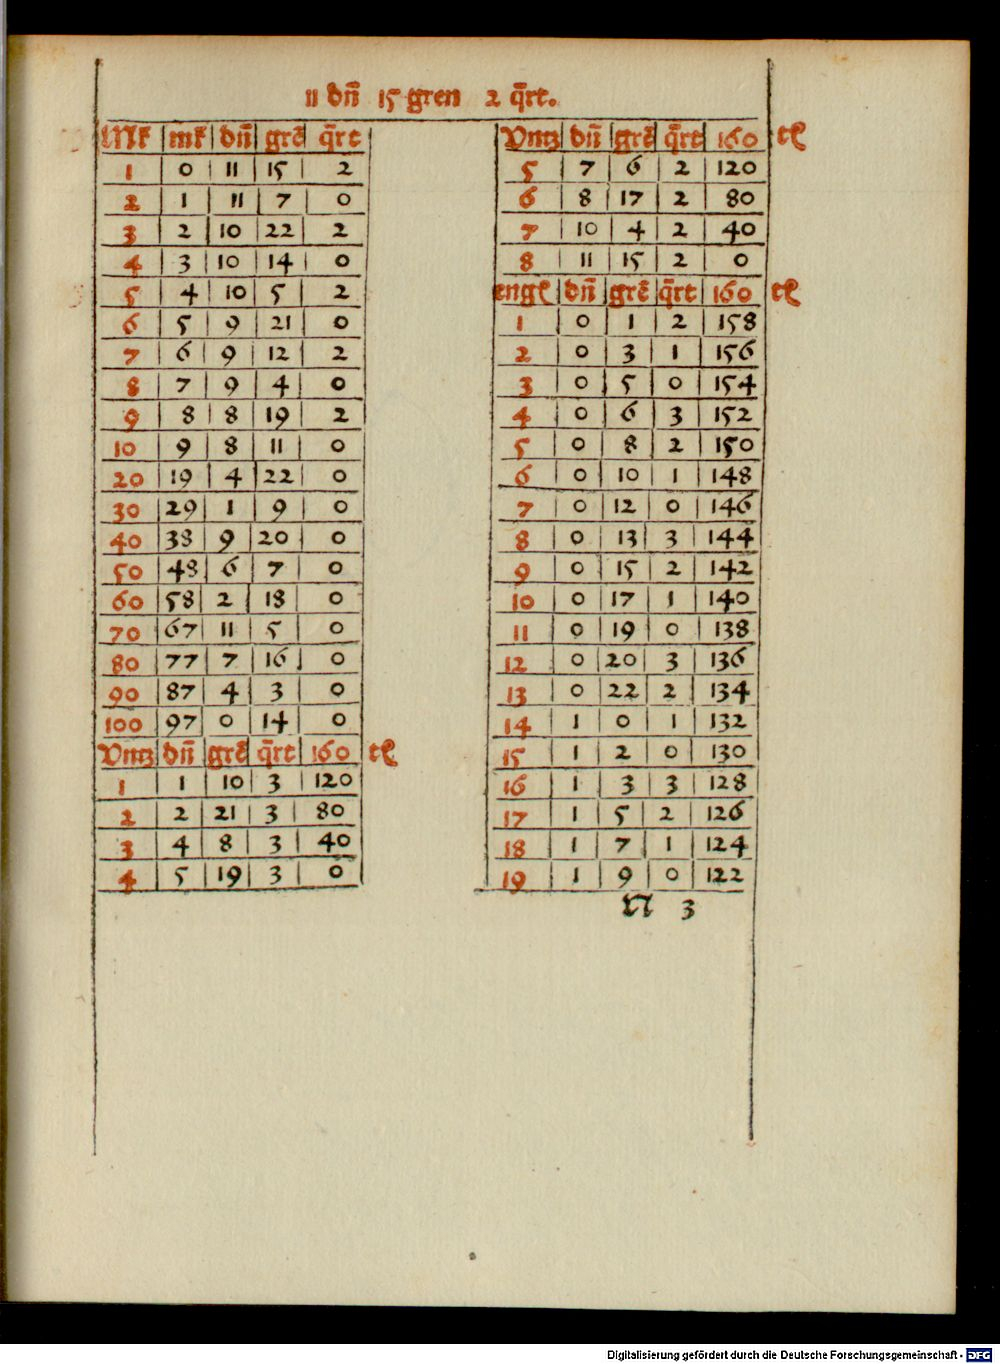 11 dn̄ 15 gren 2 q̄rt.
Mk mk dn̄ grē q̄rt
1 0 11 15 2
2 1 11 7 0
3 2 10 22 2
4 3 10 14 0
5 4 10 5 2
6 5 9 21 0
7 6 9 12 2
8 7 9 4 0
9 8 8 19 2
10 9 8 11 0
20 19 4 22 0
30 29 1 9 0
40 38 9 20 0
50 48 6 7 0
60 58 2 18 0
70 67 11 5 0
80 77 7 16 0
90 87 4 3 0
100 97 0 14 0
Vntz dn̄ grē q̄rt 160 tl
1 1 10 3 120
2 2 21 3 80
3 4 8 3 40
4 5 19 3 0
Vntz dn̄ grē q̄rt 160 tl
5 7 6 2 120
6 8 17 2 80
7 10 4 2 40
8 11 15 2 0
engl dn̄ grē q̄rt 160 tl
1 0 1 2 158
2 0 3 1 156
3 0 5 0 154
4 0 6 3 152
5 0 8 2 150
6 0 10 1 148
7 0 12 0 146
8 0 13 3 144
9 0 15 2 142
10 0 17 1 140
11 0 19 0 138
12 0 20 3 136
13 0 22 2 134
14 1 0 1 132
15 1 2 0 130
16 1 3 3 128
17 1 5 2 126
18 1 7 1 124
19 1 9 0 122
n 3
Digitalisierung gefördert durch die Deutsche Forschungsgemeinschaft - DFG